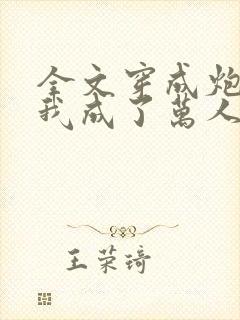 全文穿成炮
我成了萬人
王荣琦